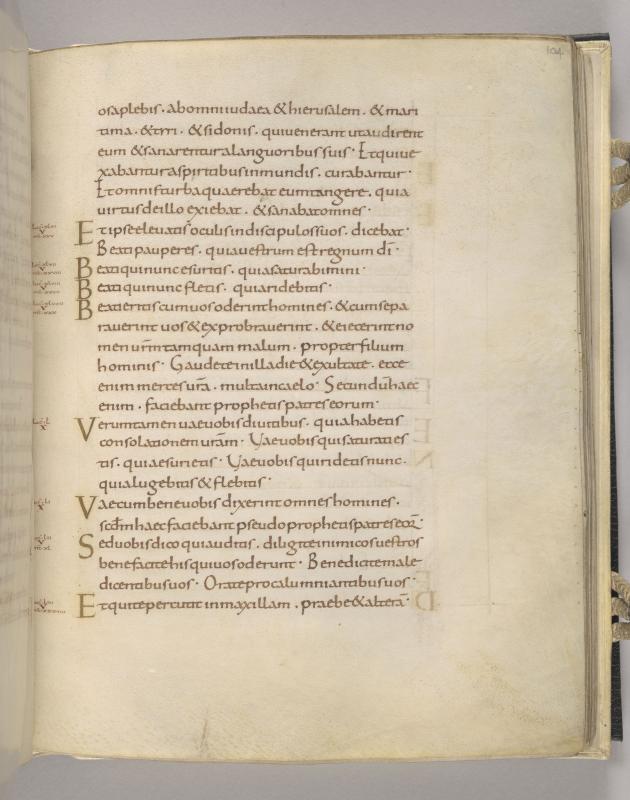 104.
osaplebis · abomniiudaea & hierusalem · & mari
tima · & tyri · & sidonis · quiuenerant utaudirent
eum & sanarentur alanguoribus suis · Etquiue
xabantur aspiritibus inmundis · curabantur ·
Etomnisturba quaerebat eumtangere · quia
uirtus deillo exiebat · & sanabat omnes ·
Etipse eleuatis oculis indiscipulos suos · dicebat ·
Beati pauperes · quia uestrum est regnum dī ·
Beati quinunc esuritis · quia saturabimini ·
Beati quinunc fletis · quia ridebitis ·
Beati eritis cumuos oderint homines · & cumsepa
rauerint uos & exprobrauerint · & eiecerint no
men urm̄ tamquam malum · propter filium
hominis · Gaudete inilladie & exultate · ecce
enim merces ura̅ · multa incaelo · Secundū haec
enim · faciebant prophetis patres eorum ·
Uerumtamen uaeuobis diuitibus · quia habetis
consolationem uram̄ · Uaeuobis qui saturati es
tis · quia esurietis · Uaeuobis qui ridetis nunc ·
quia lugebitis & flebitis ·
Uae cum beneuobis dixerint omnes homines ·
scd̄m haec faciebant pseudo prophetis patres eor̄ ·
Seduobis dico quiauditis · diligite inimicos uestros
benefacite his quiuos oderunt · Benedicite male
dicentibus uos · Orate pro calumniantibus uos ·
Et quite percutit inmaxillam · praebe & alterā ·